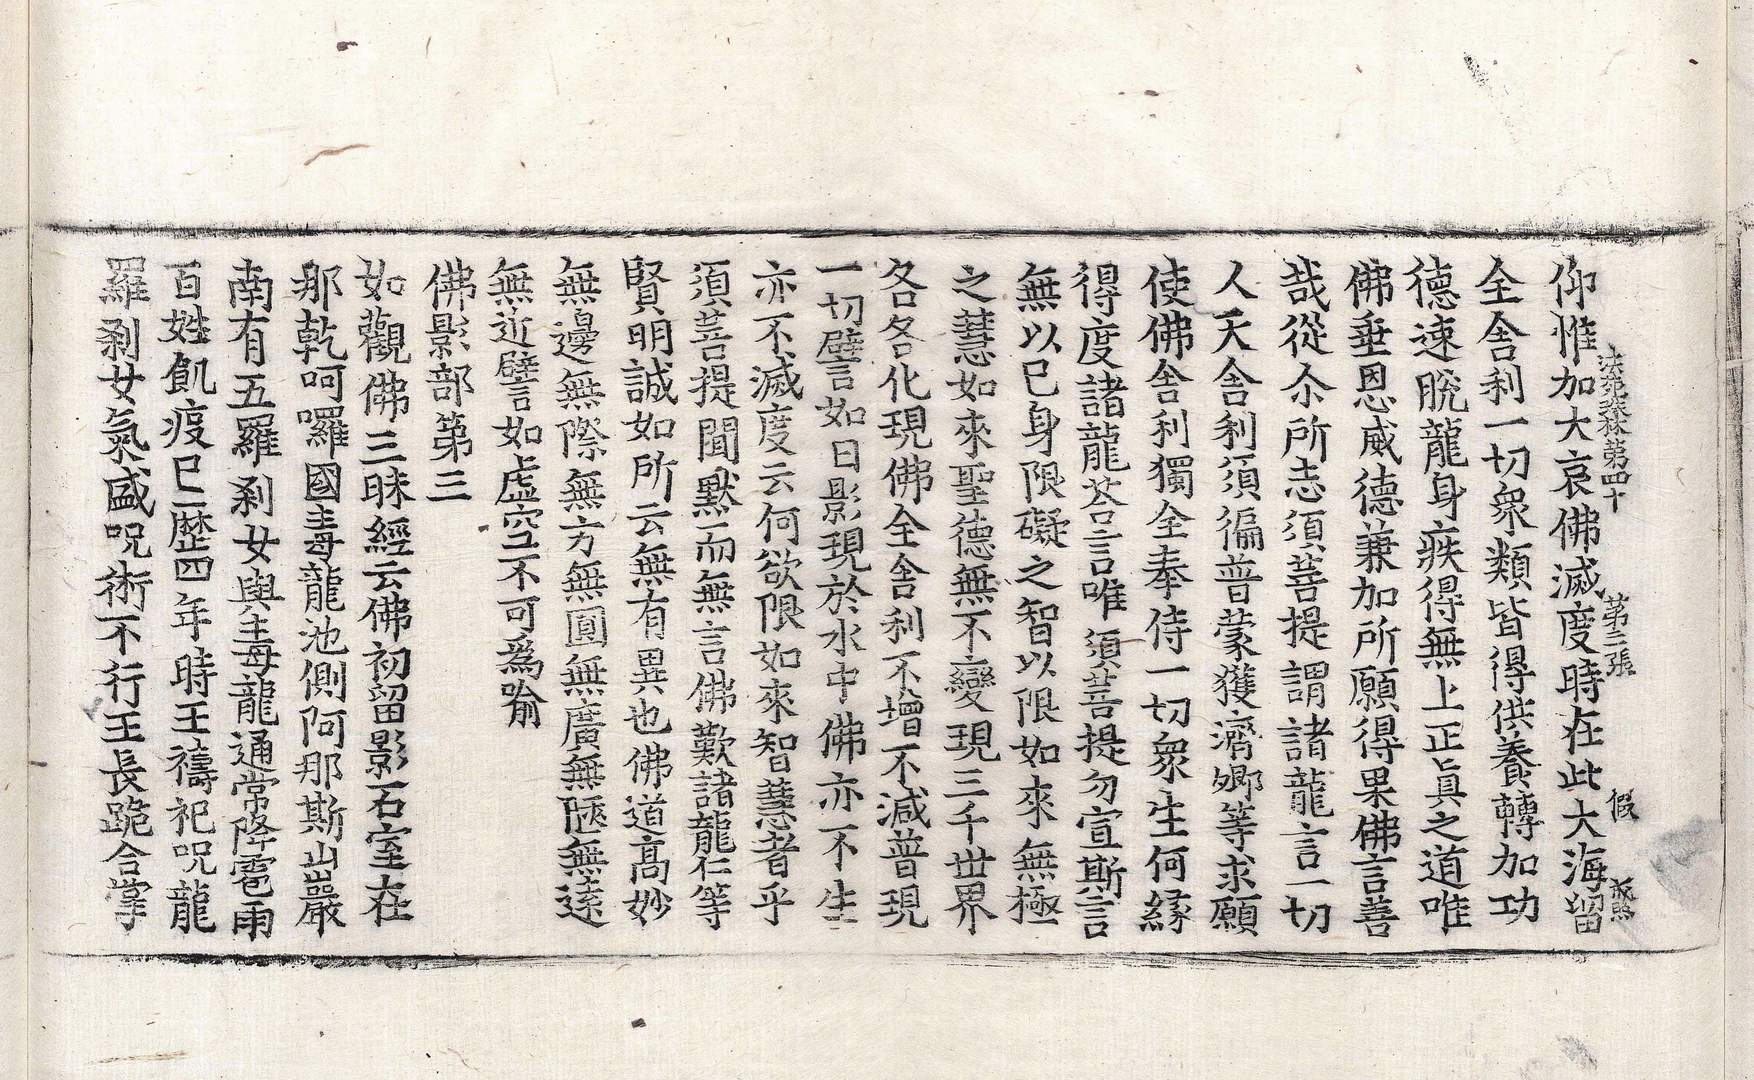 法苑珠林第四十 第三張 假
仰惟加大哀佛滅度時在此大海留
全舍利一切衆類皆得供養轉加功
德速脫龍身疾得無上正真之道唯
佛垂恩威德兼加所願得果佛言善
哉從尒所志須菩提謂諸龍言一切
人天舍利須徧普蒙獲濟卿等求願
使佛舍利獨全奉侍一切衆生何緣
得度諸龍荅言唯須菩提勿宣斯言
無以已身限礙之智以限如來無極
之慧如來聖德無不變現三千世界
各各化現佛全舍利不增不減普現
一切譬言如日影現於水中佛亦不生
亦不滅度云何欲限如來智慧者乎
須菩提聞默而無言佛歎諸龍仁等
賢明誠如所云無有異也佛道高妙
無邊無際無方無圓無廣無陿無遠
無近譬言如虛空不可爲喻
佛影部第三
如觀佛三昧經云佛初留影石室在
那乾呵囉國毒龍池側阿那斯山巖
南有五羅刹女與毒龍通常降雹雨
百姓飢疫已歷四年時王禱祀呪龍
羅刹女氣盛呪術不行王長跪合掌